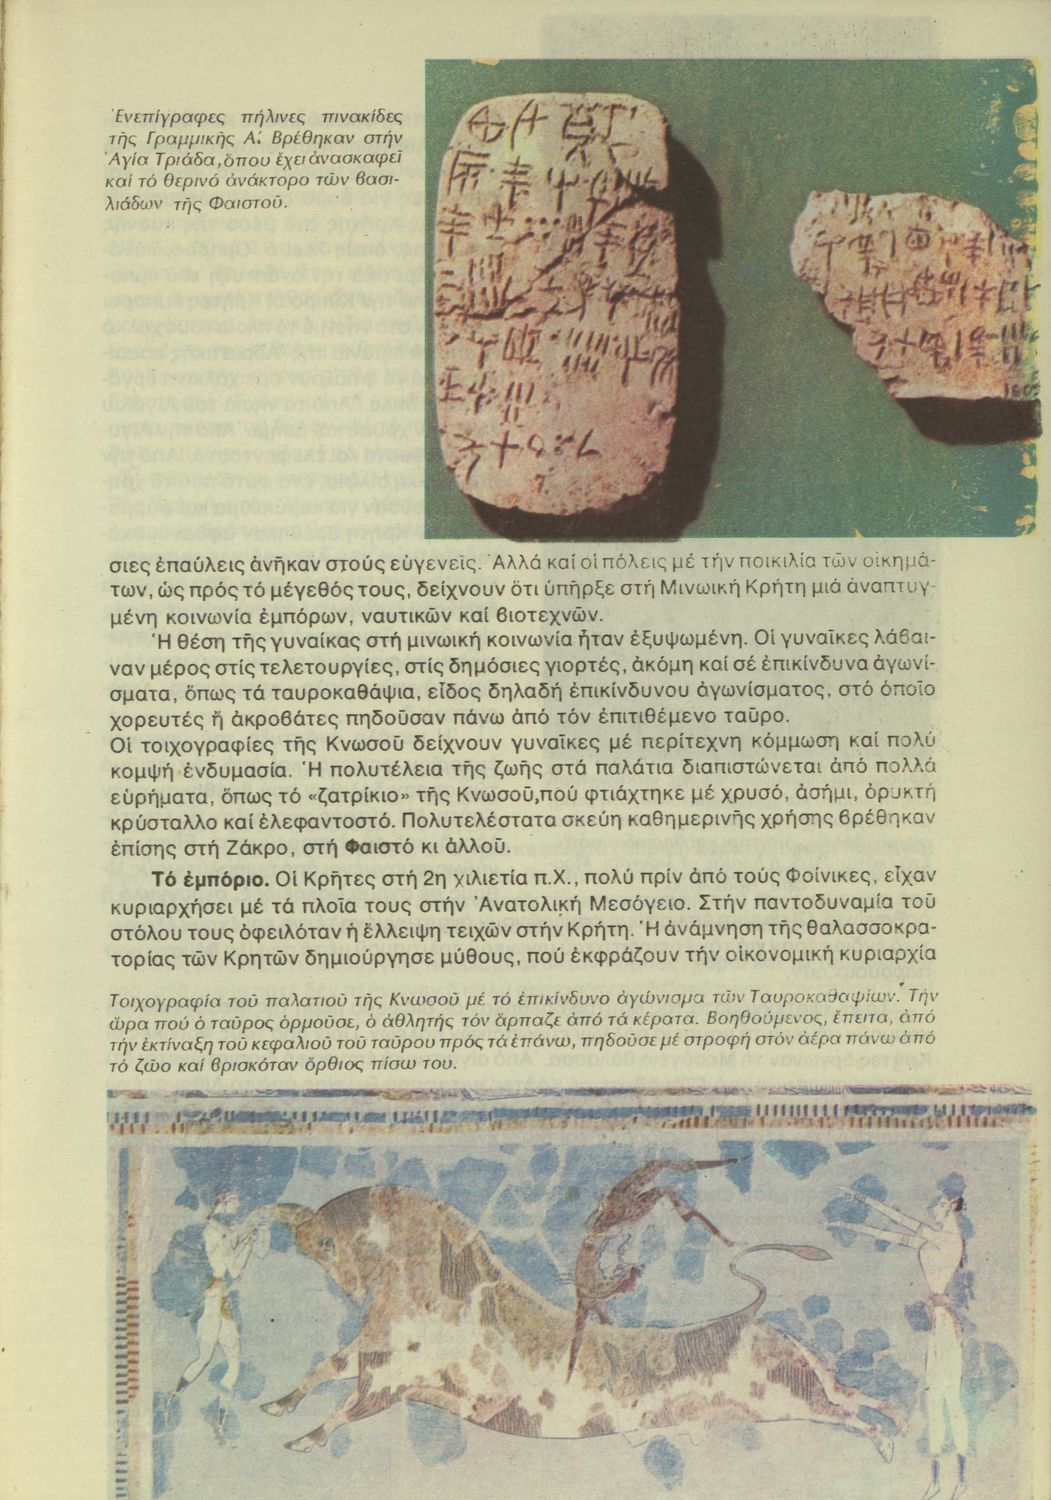 Ἐνεπίγραφες πήλινες πινακίδες
τῆς Γραμμικῆς Α΄. Βρέθηκαν στήν
Ἁγία Τριάδα, ὅπου ἔχει ἀνασκαφεῖ
καί τό θερινό ἀνάκτορο τῶν βασι-
λιάδων τῆς Φαιστοῦ.
σιες ἐπαύλεις ἀνῆκαν στούς εὐγενεῖς. Ἀλλά καί οἱ πόλεις μέ τήν ποικιλία τῶν οἰκημά-
των, ὡς πρός τό μέγεθός τους, δείχνουν ὅτι ὑπῆρξε στή Μινωική Κρήτη μιά ἀναπτυγ-
μένη κοινωνία ἐμπόρων, ναυτικῶν καί βιοτεχνῶν.
Ἡ θέση τῆς γυναίκας στή μινωική κοινωνία ἦταν ἐξυψωμένη. Οἱ γυναῖκες λάβαι-
ναν μέρος στίς τελετουργίες, στίς δημόσιες γιορτές, ἀκόμη καί σέ ἐπικίνδυνα ἀγωνί-
σματα, ὅπως τά ταυροκαθάψια, εἶδος δηλαδή ἐπικίνδυνου ἀγωνίσματος, στό ὁποῖο
χορευτές ἤ ἀκροβάτες πηδοῦσαν πάνω ἀπό τόν ἐπιτιθέμενο ταῦρο.
Οἱ τοιχογραφίες τῆς Κνωσοῦ δείχνουν γυναῖκες μέ περίτεχνη κόμμωση καί πολύ
κομψή ἐνδυμασία. Ἡ πολυτέλεια τῆς ζωῆς στά παλάτια διαπιστώνεται ἀπό πολλά
εὑρήματα, ὅπως τό «ζατρίκιο» τῆς Κνωσοῦ, πού φτιάχτηκε μέ χρυσό, ἀσήμι, ὀρυκτή
κρύσταλλο καί ἐλεφαντοστό. Πολυτελέστατα σκεύη καθημερινῆς χρήσης βρέθηκαν
ἐπίσης στή Ζάκρο, στή Φαιστό κι ἀλλοῦ.
Τό ἐμπόριο. Οἱ Κρῆτες στή 2η χιλιετία π.Χ., πολύ πρίν ἀπό τούς Φοίνικες, εἶχαν
κυριαρχήσει μέ τά πλοῖα τους στήν Ἀνατολική Μεσόγειο. Στήν παντοδυναμία τοῦ
στόλου τους ὀφειλόταν ἡ ἔλλειψη τειχῶν στήν Κρήτη. Ἡ ἀνάμνηση τῆς θαλασσοκρα-
τορίας τῶν Κρητῶν δημιούργησε μύθους, πού ἐκφράζουν τήν οἰκονομική κυριαρχία
Τοιχογραφία τοῦ παλατιοῦ τῆς Κνωσοῦ μέ τό ἐπικίνδυνο ἀγώνισμα τῶν Ταυροκαθαψίων. Τήν
ὥρα πού ὁ ταῦρος ὁρμοῦσε, ὁ ἀθλητής τόν ἅρπαζε ἀπό τά κέρατα. Βοηθούμενος, ἔπειτα, ἀπό
τήν ἐκτίναξη τοῦ κεφαλιοῦ τοῦ ταύρου πρός τά ἐπάνω, πηδοῦσε μέ στροφή στόν ἀέρα πάνω ἀπό
τό ζῶο καί βρισκόταν ὄρθιος πίσω του.